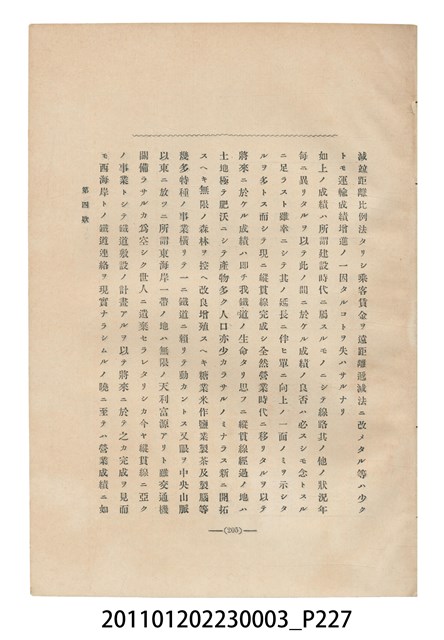 減竝距離比例法タリシ乘客賃金ヲ遠距離遞減法ニ改メタル等ハ少ク
トモ運輸成績增進ノ一因タルコトヲ失ハサルナリ
如上ノ成績ハ所謂建設時代ニ屬スルモノニシテ線路其ノ他ノ狀況年
每ニ異リタルヲ以テ此ノ間ニ於ケル成績ノ良否ハ必スシモ念トスル
ニ足ラスト雖幸ニシテ其ノ延長ニ伴ヒ單ニ向上ノ一面ノミヲ示シタ
ルヲ多トス而シテ現ニ縱貫線完成シ全然營業時代ニ移リタルヲ以テ
將來ニ於ケル成績ハ卽チ我鐵道ノ生命タリ思フニ縱貫線經過ノ地ハ
土地極テ肥沃ニシテ產物多ク人口亦少カラサルノミナラス新ニ開拓
スヘキ無限ノ森林ヲ控ヘ改良增殖スヘキ糖業米作鹽業製茶及製腦等
幾多特種ノ事業橫リテ一ニ鐵道ニ賴リテ動カントス又眼ヲ中央山脈
以東ニ放ツニ所謂東海岸一帶ノ地ハ無限ノ天利富源アリト雖交通機
關備ラサルカ爲空シク世人ニ遺棄セラレタリシカ今ヤ縱貫線ニ亞ク
ノ事業トシテ鐵道敷設ノ計畫アルヲ以テ將來ニ於テ之カ完成ヲ見而
モ西海岸トノ鐵道連絡ヲ現實ナラシムルノ曉ニ至テハ營業成績ニ如
第四款
(205)
201101202230003_P227